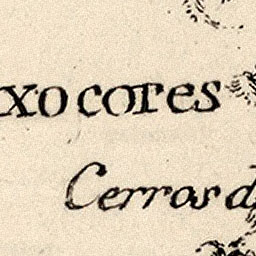 xocores
Cerros d